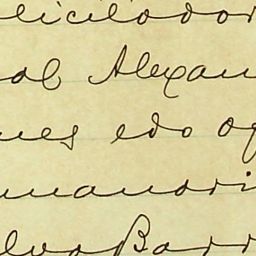 licitador
al Alexan
nes edo og
manori
lva Barr